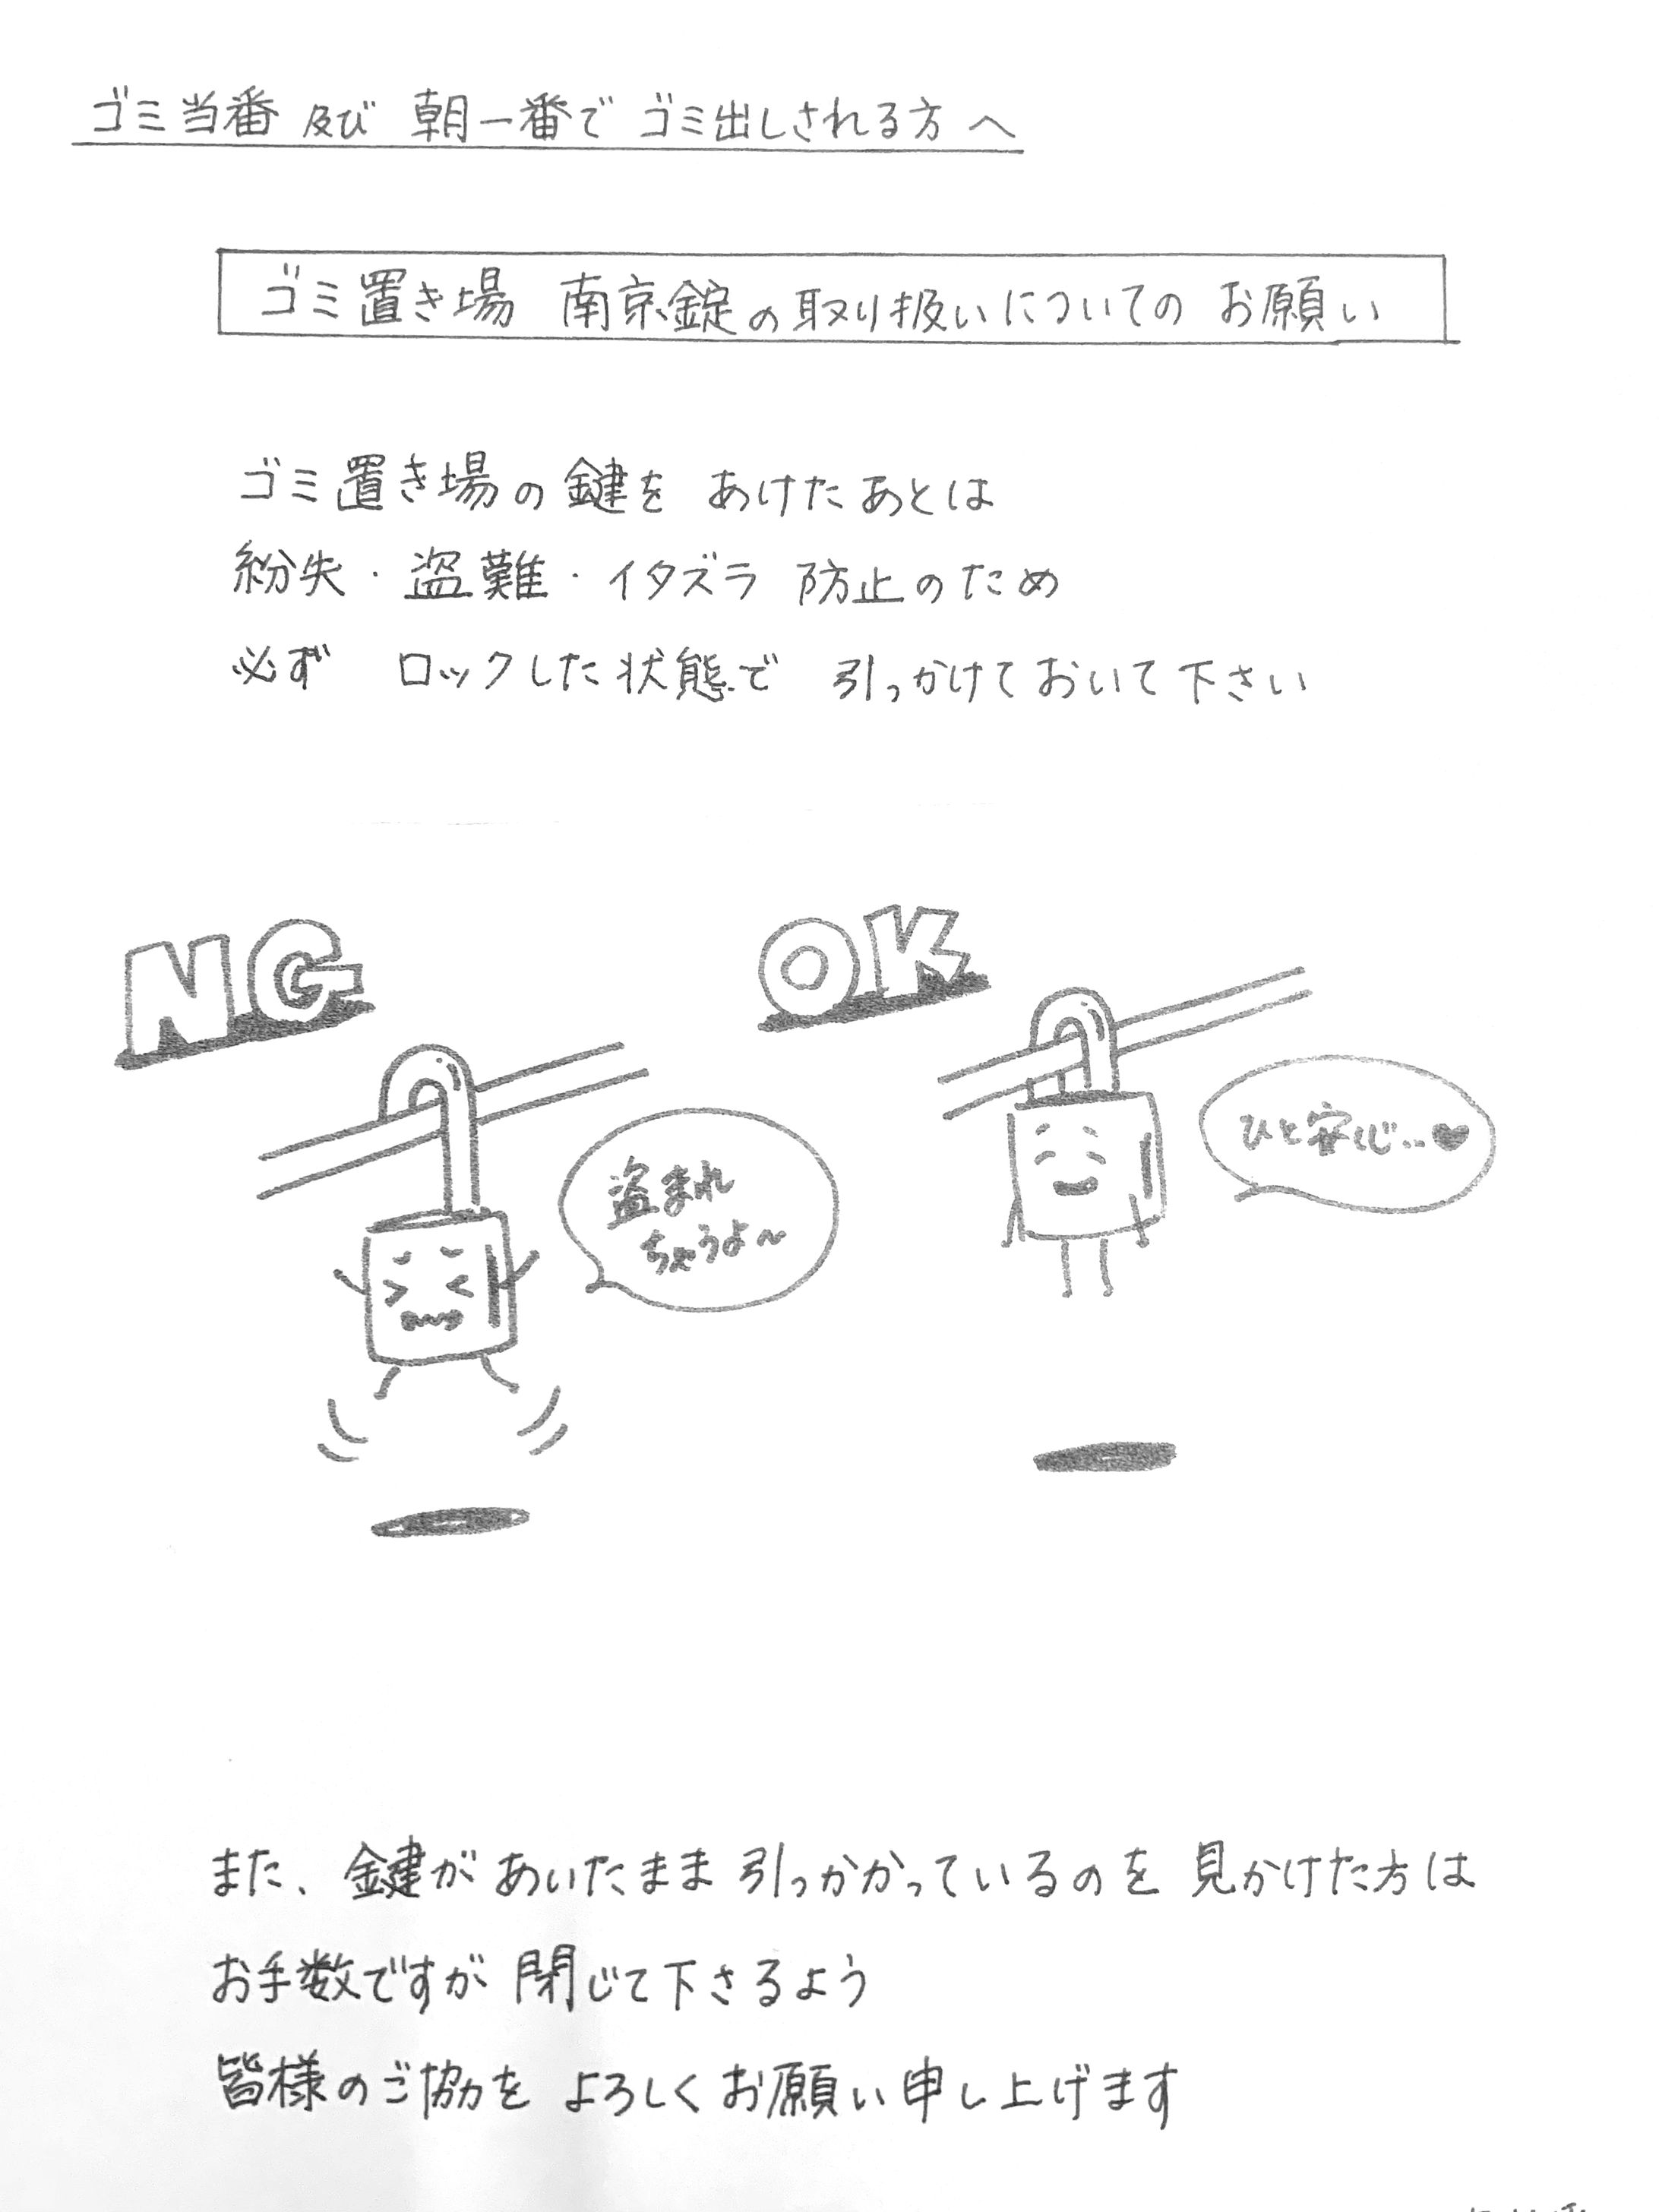 ゴミ当番 及び 朝一番で ゴミ出しされる方 へ
ゴミ置き場 南京錠の取り扱いについての お願い
ゴミ置き場の鍵を あけたあとは
紛失・盗難・イタズラ 防止のため
必ず ロックした状態で 引っかけておいて下さい
NG
OK
盗まれ
ちゃうよ〜
ひと安心‥♥
また、鍵が あいたまま 引っかかっているのを 見かけた方は
お手数ですが 閉じて下さるよう
皆様のご協を よろしくお願い申し上げます